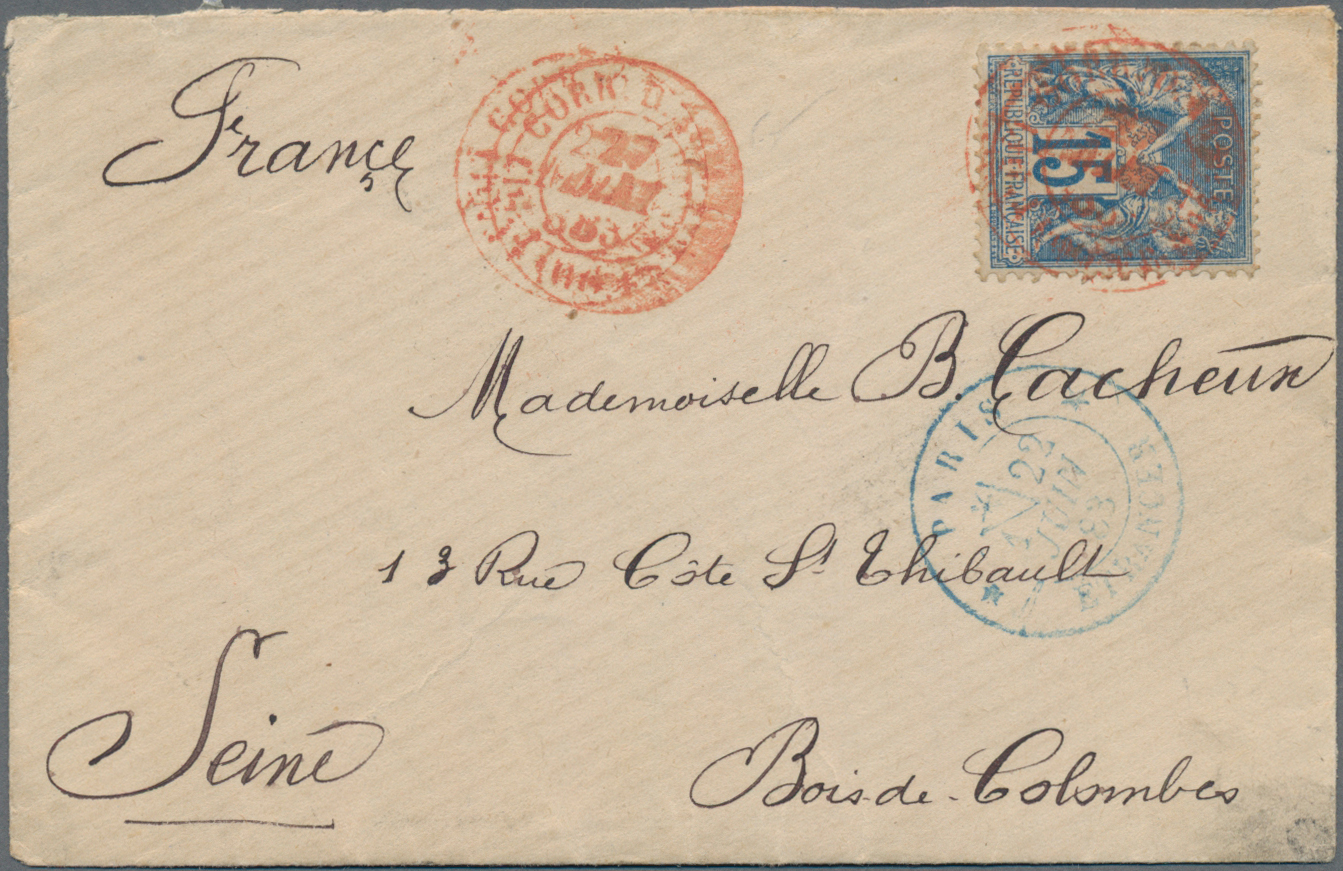 France
CORR. D.
JUIN
POSTE
15
REPUBLIQUE FRANÇAISE
Mademoiselle B. Cacheux
PARIS
22
JUIN
83
ETRANGER
13 Rue Côte St Thibault
Seine
Bois-de-Colombes